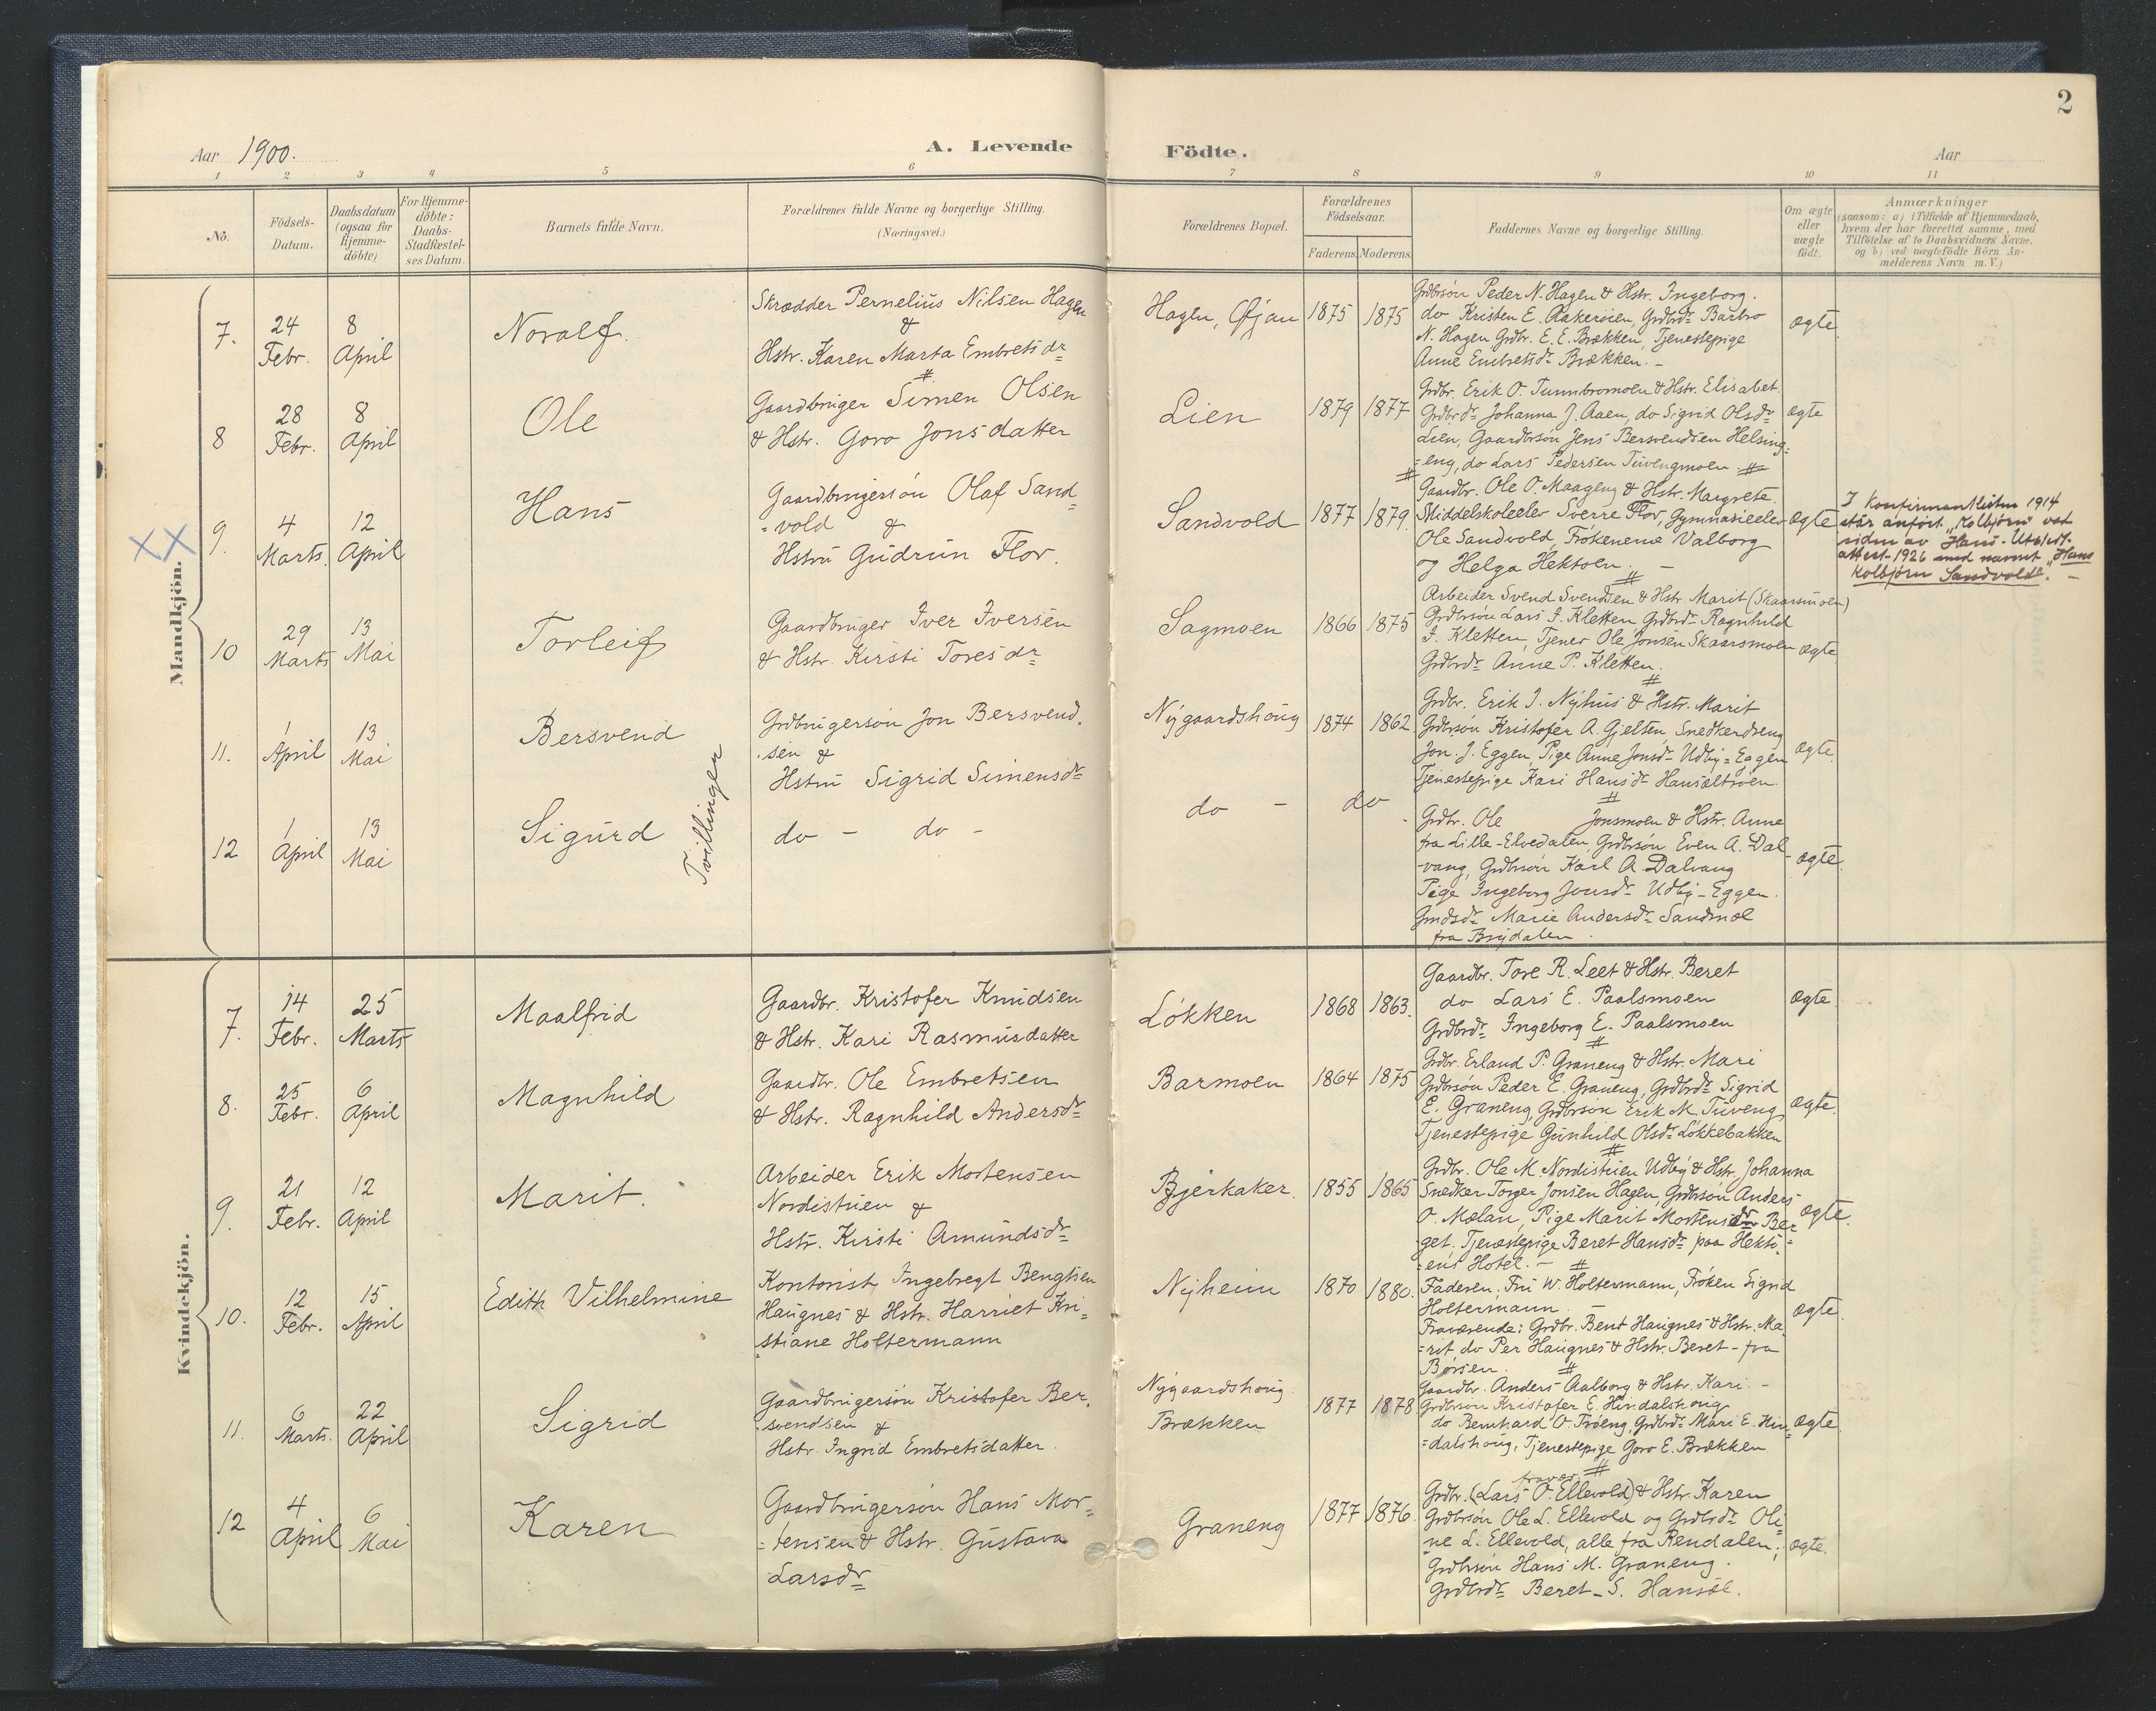 2
Aar 1900.
A. Levende Födte.
Aar
1 2 3 4 5 6 7 8 9 10 11
Nö.
Födsels-Datum.
Daabsdatum (ogsaa for Hjemme-döbte)
For Hjemme-döbte: Daabs-Stadfæstel-ses Datum.
Barnets fulde Navn.
Forældrenes fulde Navne og borgerlige Stilling.
(Næringsvei.)
Forældrenes Bopæl.
Forældrenes Födselsaar.
Faderens. Moderens.
Faddernes Navne og borgerlige Stilling.
Om ægte eller uægte födt.
Anmærkninger
(saasom: a) i Tilfælde af Hjemmedaab,
hvem der har forrettet samme, med
Tilföielse af to Daabsvidners Navne.
og b) ved uægtefödte Börn An-
melderens Navn m.V.)
Mandkjön.
7. 24 Febr. 8 April
Noralf.
Skrædder Pernelius Nilsen Hagen
&
Hstr. Karen Marta Embretsdr
Hagen, Öian 1875 1875
Grdbrsön Peder N. Hagen & Hstr. Ingeborg.
do Kristen E. Aakeröien, Grdbrdr Barbro
N. Hagen Grdbr. E. E. Brækken, Tjenestepige
Anne Embretsdr Brækken. -
ægte
8 28 Febr. 8 April
Ole
Gaardbruger Simen Olsen
& Hstr. Goro Jonsdatter
Lien 1879 1877
Grdbr. Erik O. Tunnbromoen & Hstr. Elisabet.
Grdbrdr Johanna J. Aaen, do Sigrid Olsdr
Lien, Gaardbrsön Jens Bersvendsen Helsing-
=eng, do Lars Pedersen Tuvengmoen #
ægte
XX
9. 4 Marts. 12 April
Hans
Gaardbrugersön Olaf Sand=
=vold &
Hstru Gudrun Flor.
Sandvold 1877 1879.
Gaardbr. Ole O. Maageng & Hstr. Margrete.
Middelskoleelev Sverre Flor, Gymnasieelev
Ole Sandvold, Frökenerne Valborg
og Helga Hektoen. -
ægte
I konfirmantlisten 1914
står anfört "Kolbjörn" ved
siden av Hans. - Utstedt
attest 1926 med navnet "Hans
Kolbjörn Sandvold". -
10 29 Marts 13 Mai
Torleif
Gaardbruger Iver Iversen
& Hstr. Kirsti Toresdr
Sagmoen 1866 1875
Arbeider Svend Svendsen & Hstr Marit (Skaarsmoen)
Grdbrsön Lars I. Kletten Grdbrdr Ragnhild
I. Kletten, Tjener Ole Jonsen Skaarsmoen
Grdbrdr Anne P. Kletten.
ægte.
11. 1 April 13 Mai
Bersvend
Tvillinger
Grdbrugersön Jon Bersvend.
.sen &
Hstru Sigrid Simensdr
Nygaardshoug 1874 1862
Grdbr. Erik J. Nyhus & Hstr. Marit
Grdbrsön Kristofer A. Gjelten, Snedkerdreng
Jon J. Eggen, Pige Anne Jonsdr Udby=Eggen
Tjenestepige Kari Hansdr Hansæltröen.
ægte.
12 1 April 13 Mai
Sigurd
do - do -
do - do
Grdbr. Ole Jonsmoen & Hstr. Anne
fra Lille-Elvedalen, Grdbrsön Even A. Dal-
-vang, Grdbrsön Karl A. Dalvang
Pige Ingeborg Jonsdr Udby-Eggen.
Grdbrdr Marie Andersdr Sandmæl
fra Brydalen.
ægte.
Kvindekjön.
7. 14 Febr. 25 Marts
Maalfrid
Gaardbr. Kristofer Knudsen
& Hstr. Kari Rasmusdatter
Lökken 1868 1863.
Gaardbr. Tore R. Leet & Hstr. Beret
do Lars E. Paalsmoen
Grdbrdr Ingeborg E. Paalsmoen
ægte
8. 25 Febr. 6 April
Magnhild
Gaardbr. Ole Embretsen
& Hstr. Ragnhild Andersdr
Barmoen 1864 1875
Grdbr. Erland P. Graneng & Hstr. Mari
Grdbrsön Peder E. Graneng, Grdbrdr Sigrid
E. Graneng, Grdbrsön Erik M. Tuveng
Tjenestepige Gunhild Olsdr Lökkebakken
ægte.
9. 21 Febr. 12 April
Marit.
Arbeider Erik Mortensen
Nordistuen &
Hstr. Kirsti Amundsdr
Bjerkaker. 1855 1865
Grdbr. Ole M. Nordistuen Udby & Hstr. Johanna
Snedker Torger Jonsen Hagen, Grdbrsön Anders
O. Mælan, Pige Marit Mortensdr Ber-
get. Tjenestepige Beret Hansdr paa Hekto=
=ens Hotel. -
ægte.
10. 12 Febr. 15 April
Edith Vilhelmine
Kontorist Ingebregt Bengtsen
Haugnes & Hstr. Harriet Kri-
stiane Holtermann
Nyheim 1870 1880.
Faderen. Fru W. Holtermann, Fröken Sigrid
Holtermann. -
Fraværende: Grdbr. Bent Haugnes & Hstr. Ma-
=rit do Per Haugnes & Hstr. Beret - fra
Börsen.
ægte.
11. 6 Marts. 22 April
Sigrid
Gaardbrugersön Kristofer Ber-
svendsen &
Hstr. Ingrid Embretsdatter.
Nygaardshoug.
Brækken 1877 1878
Gaardbr. Anders Aalborg & Hstr. Kari -
Grdbrsön Kristofer E. Hindalshoug
do Bernhard O. Tröeng, Grdbrdr Mari E. Hin=
=dalshoug, Tjenestepige Goro E. Brækken
ægte.
12 4 April 6 Mai
Karen
Gaardbrugersön Hans Mor=
=tensen & Hstr. Gustava
Larsdr
Graneng 1877 1876.
fravær.
Grdbr. (Lars O. Ellevold) & Hstr. Karen
Grdbrsön Ole L. Ellevold og Grdbrdr Oli=
=ne L. Ellevold, alle fra Rendalen;
Grdbrsön Hans M. Graneng.
Grdbrdr Beret S. Hansæl.
ægte.